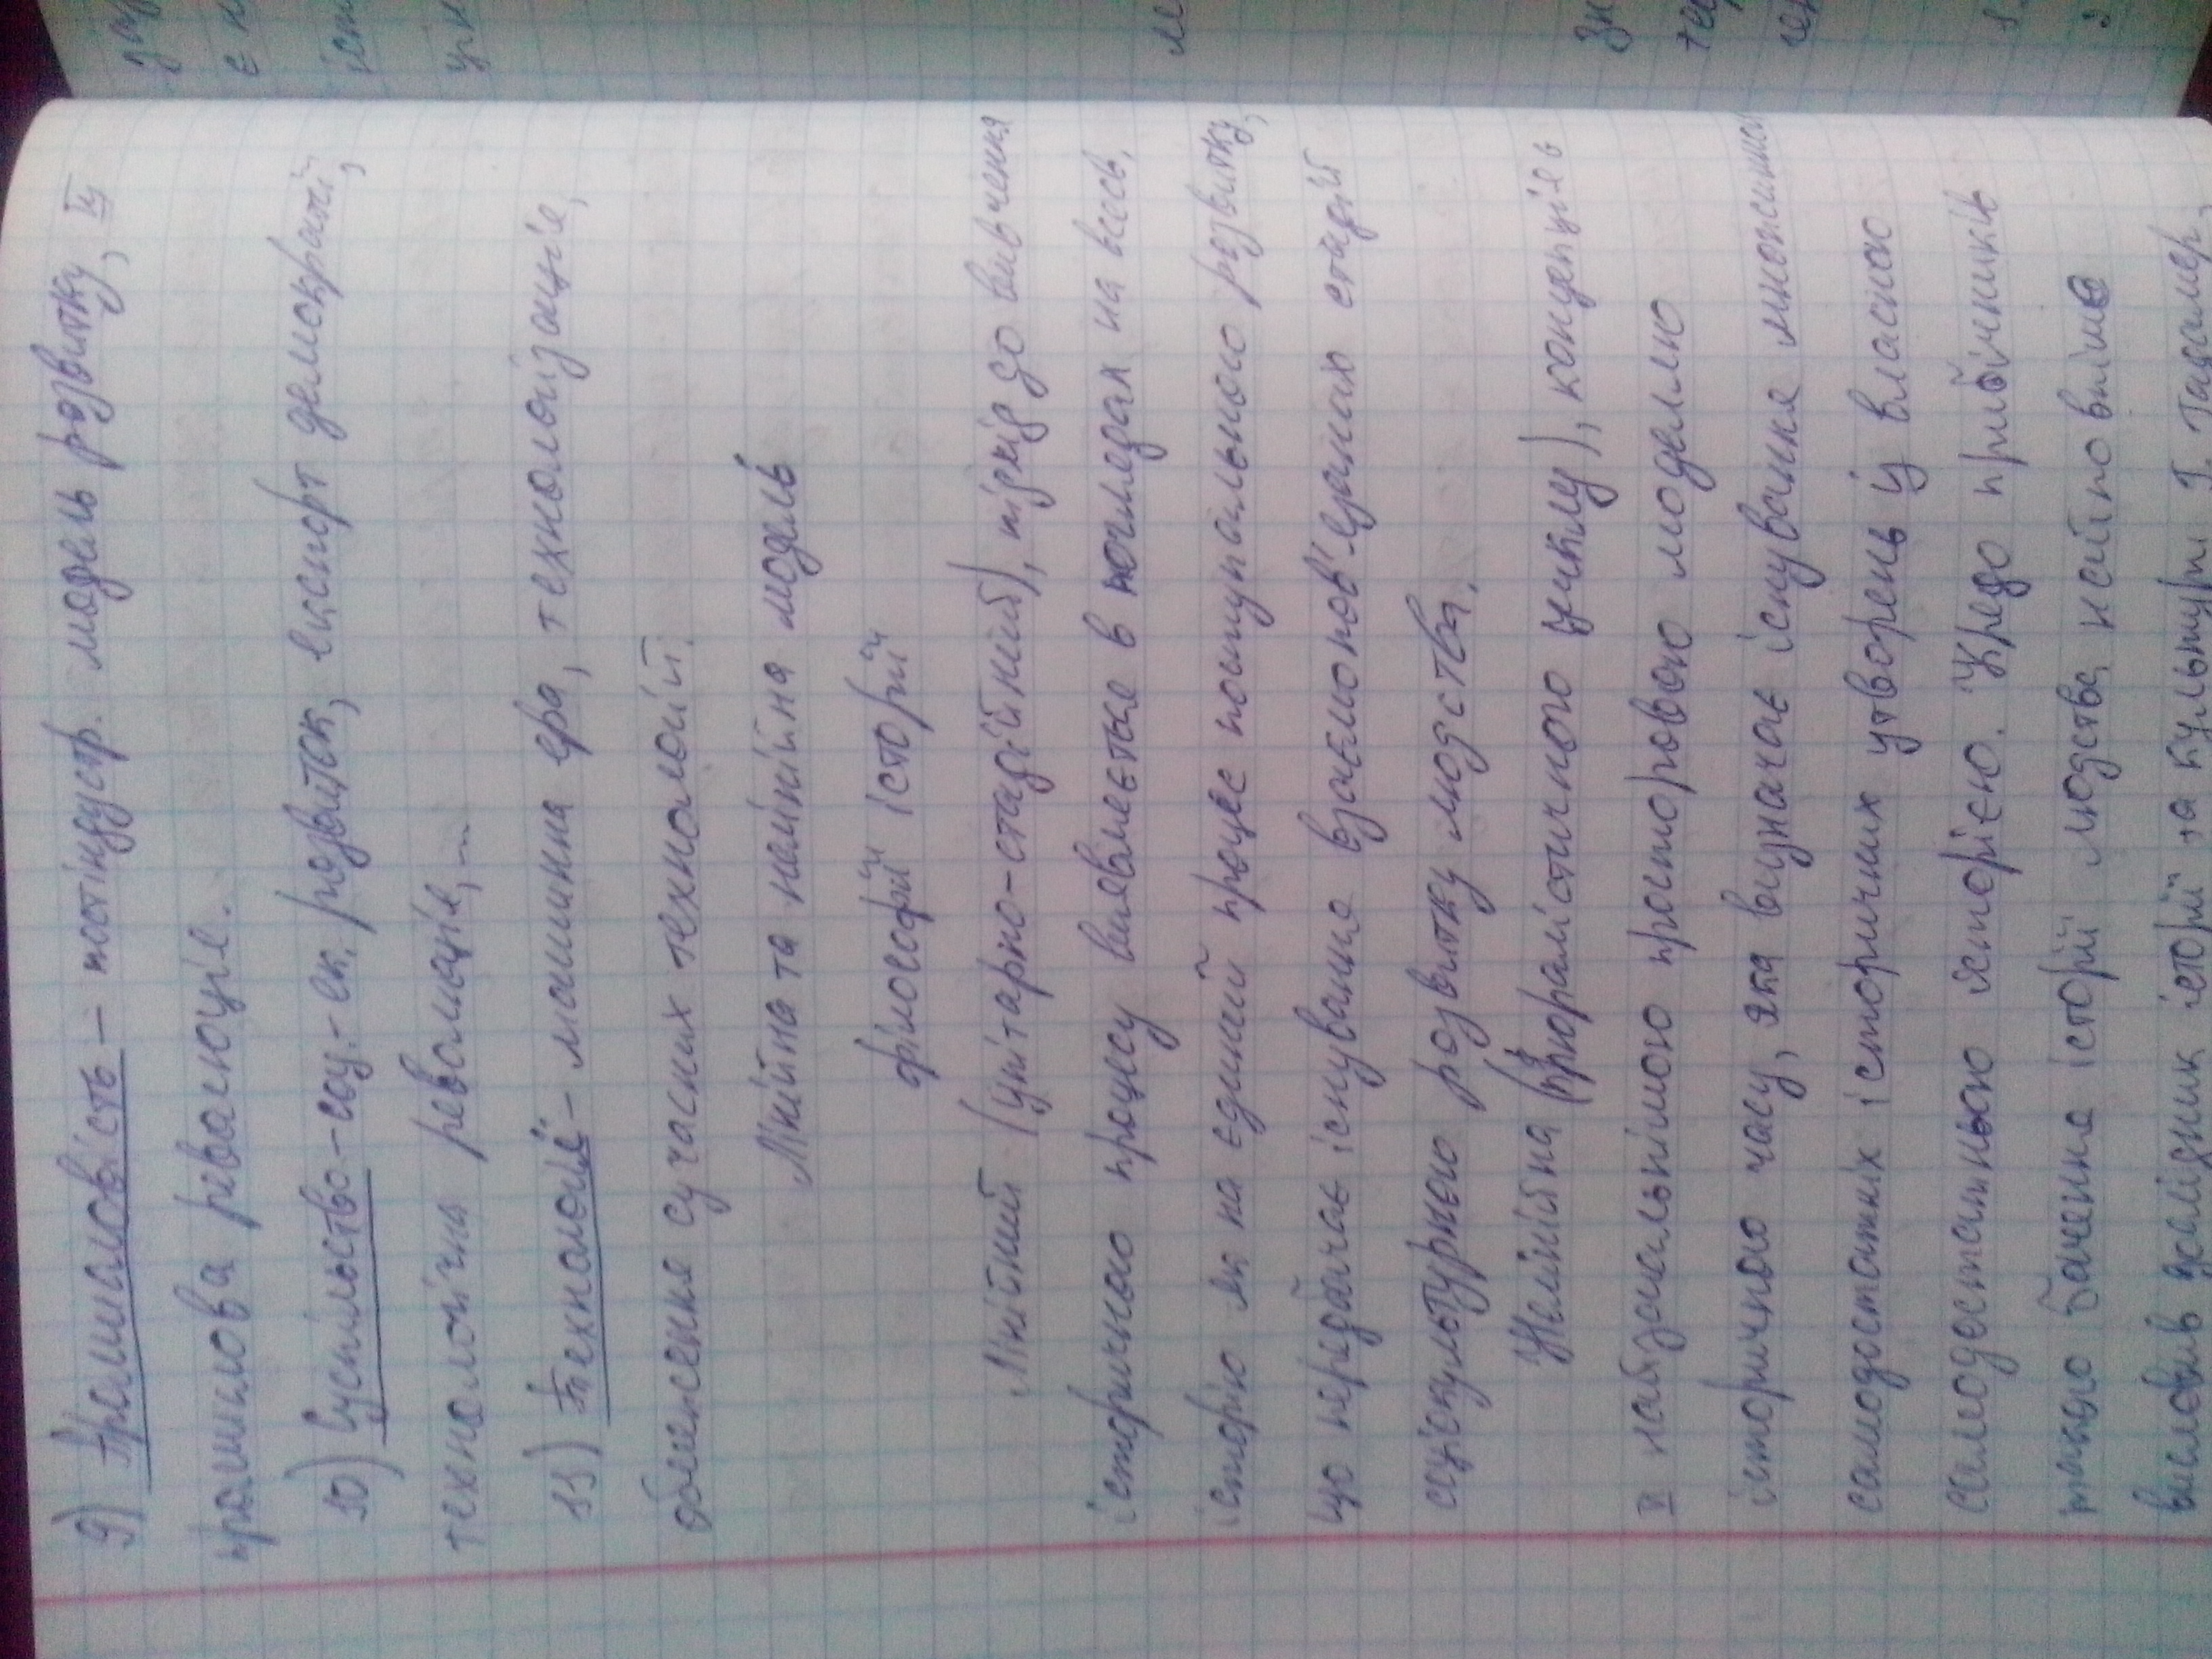 9) Промисловість – постіндустр. модель розвитку, IV
промислова революція.
10) Суспільство – соц.-ек. розвиток, експорт демократії,
технологічна революція, ...
11) Технології – машинна ера, технологізація,
обмеження сучасних технологій.
Лінійна та нелінійна модель
філософії історії
Лінійний (унітарно-стадійний), підхід до вивчення
історичного процесу виявляється в поглядах на всесв.
історію як на єдиний процес поступального розвитку,
що передбачає існування взаємопов'язаних стадій
соціокультурного розвитку людства.
Нелінійна (плюралістичного циклу), концепція є
найзагальнішою просторовою моделлю
історичного часу, яка визначає існування множинності
самодостатніх історичних утворень із власною
самодостатньою історією. Кредо прибічників
такого бачення історії людства найповніше
висловив дослідник історії та культури Г. Гадамер,
є
іст